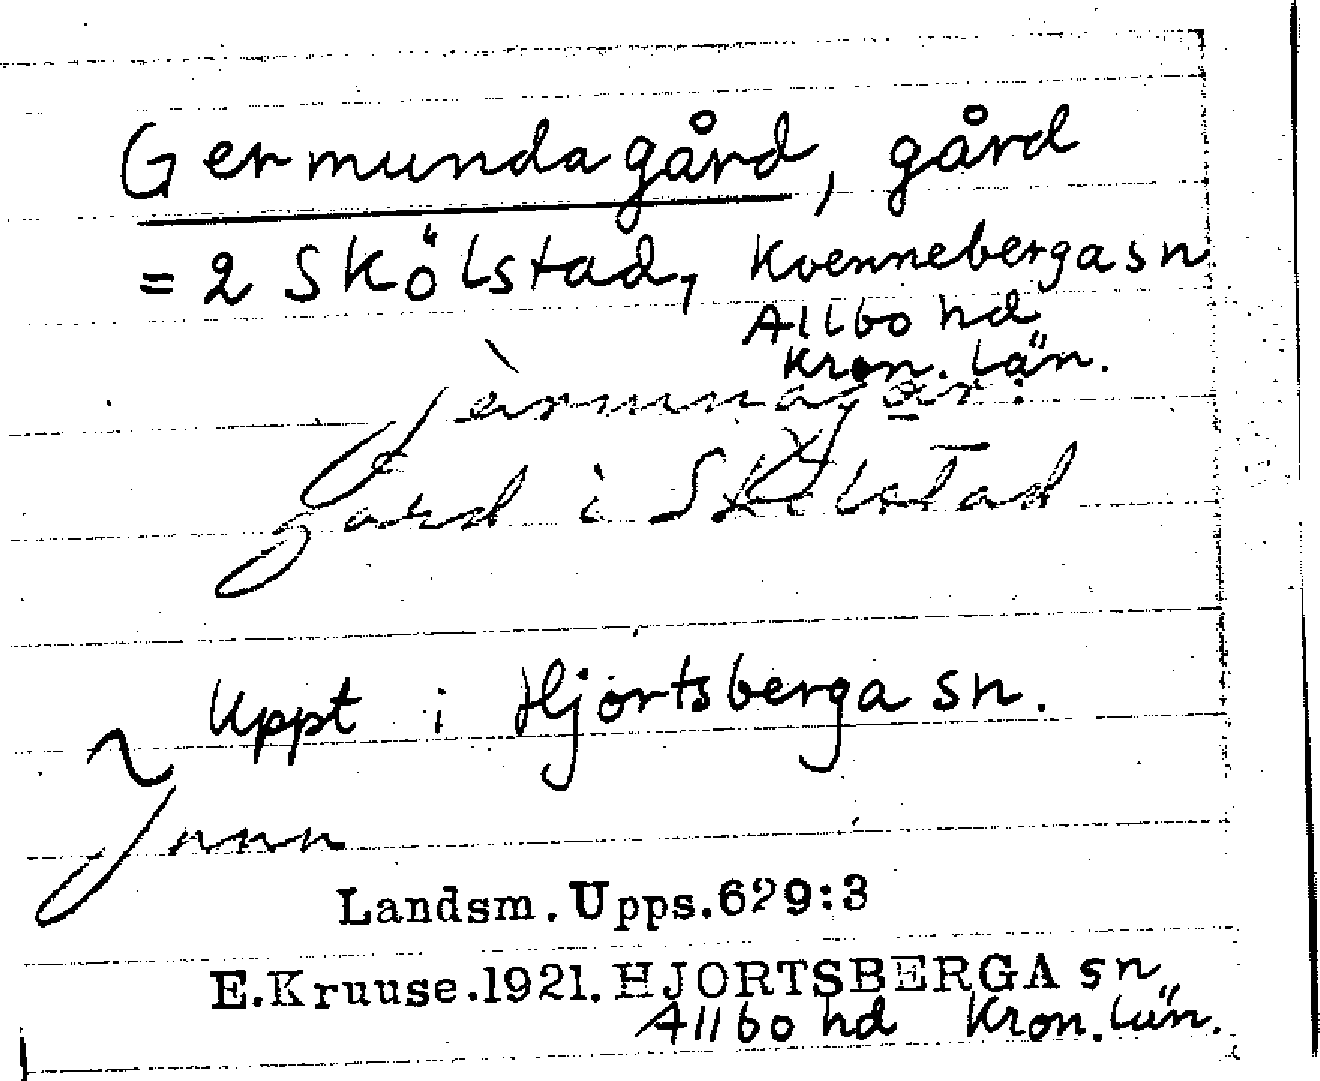 Germundagård, gård
= 2 Skölstad, Kvennebergasn
Allbo hd
Kron. län.
gård i Skölstad
Uppt i Hjortsberga sn.
Landsm. Upps. 629:3
E. Kruuse. 1921. HJORTSBERGA sn
Allbo hd Kron. län.